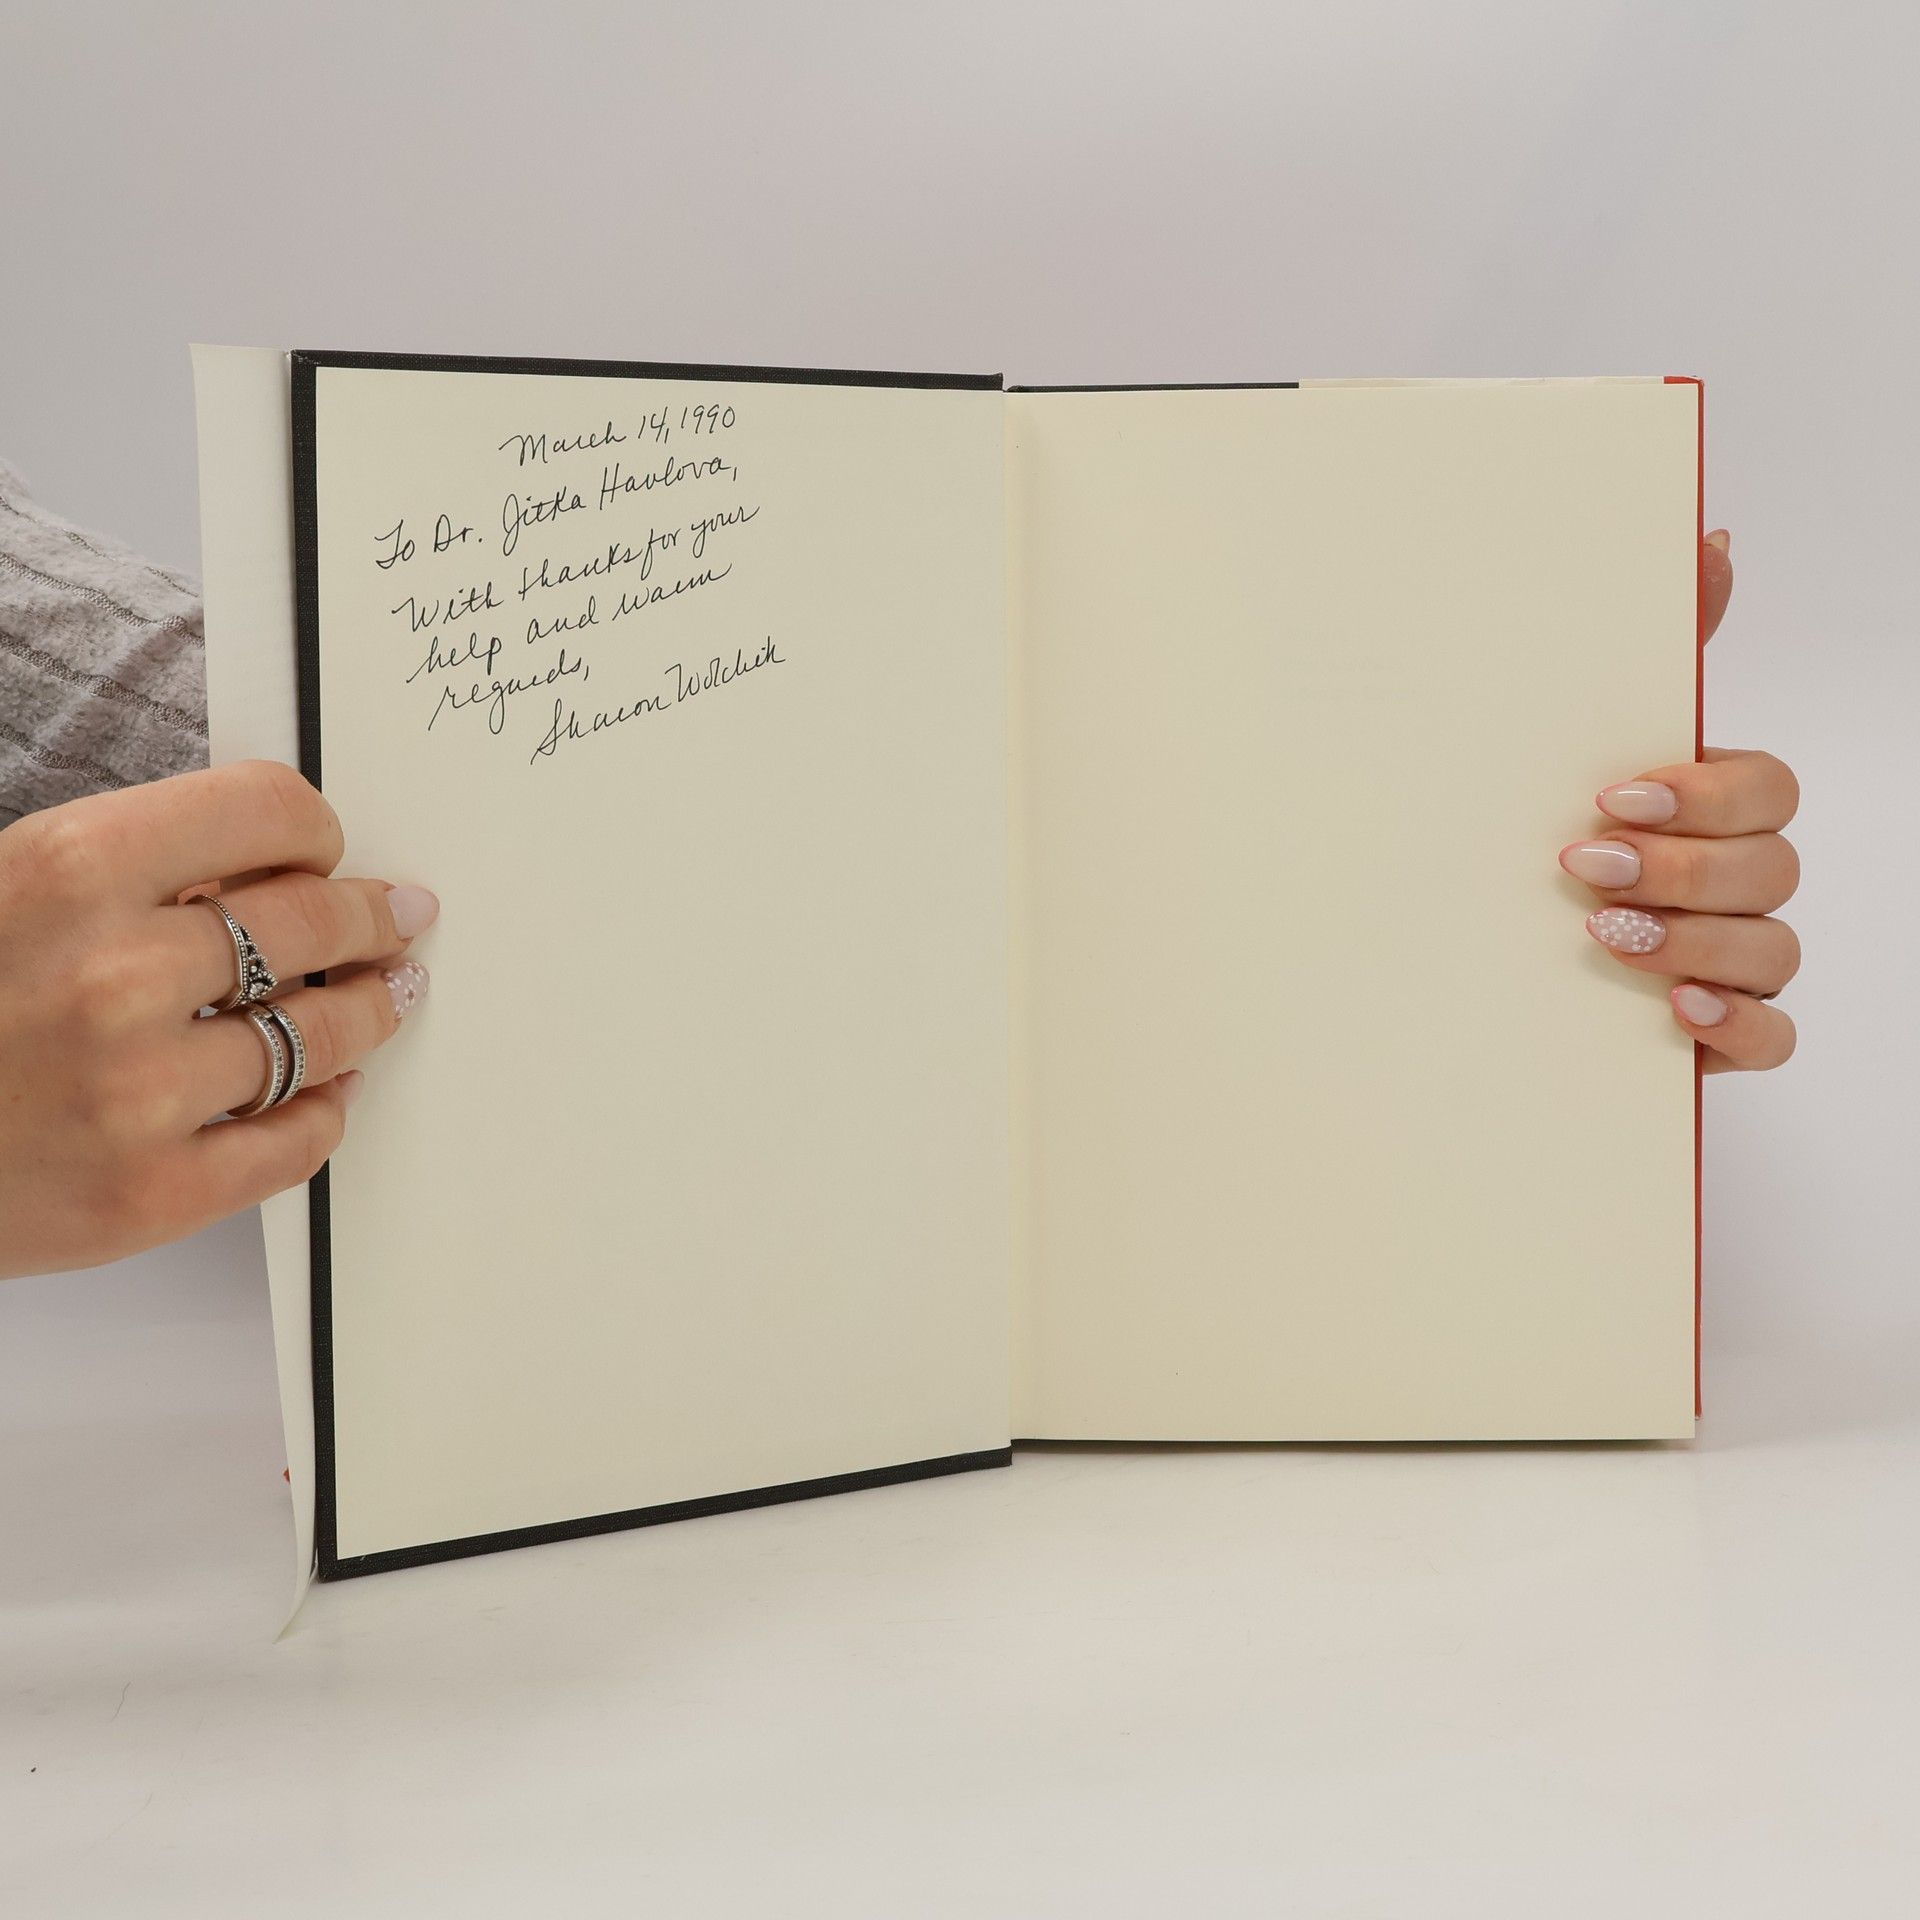 March 14, 1990
To Dr. Jitka Havlova,
With thanks for your
help and warm
regards,
Sharon Wolchik